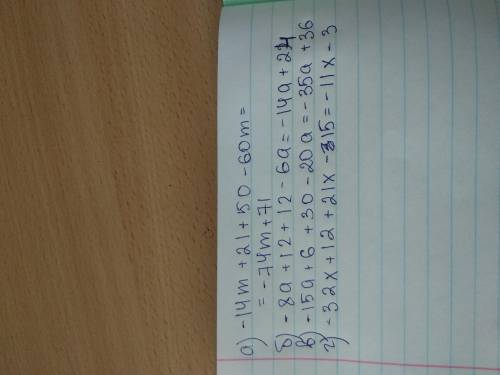 а) -14m + 21 + 50 - 60m =
= -74m + 71
б) -8a + 12 + 12 - 6a = -14a + 24
в) -15a + 6 + 30 - 20a = -35a + 36
г) -32x + 12 + 21x - 15 = -11x - 3